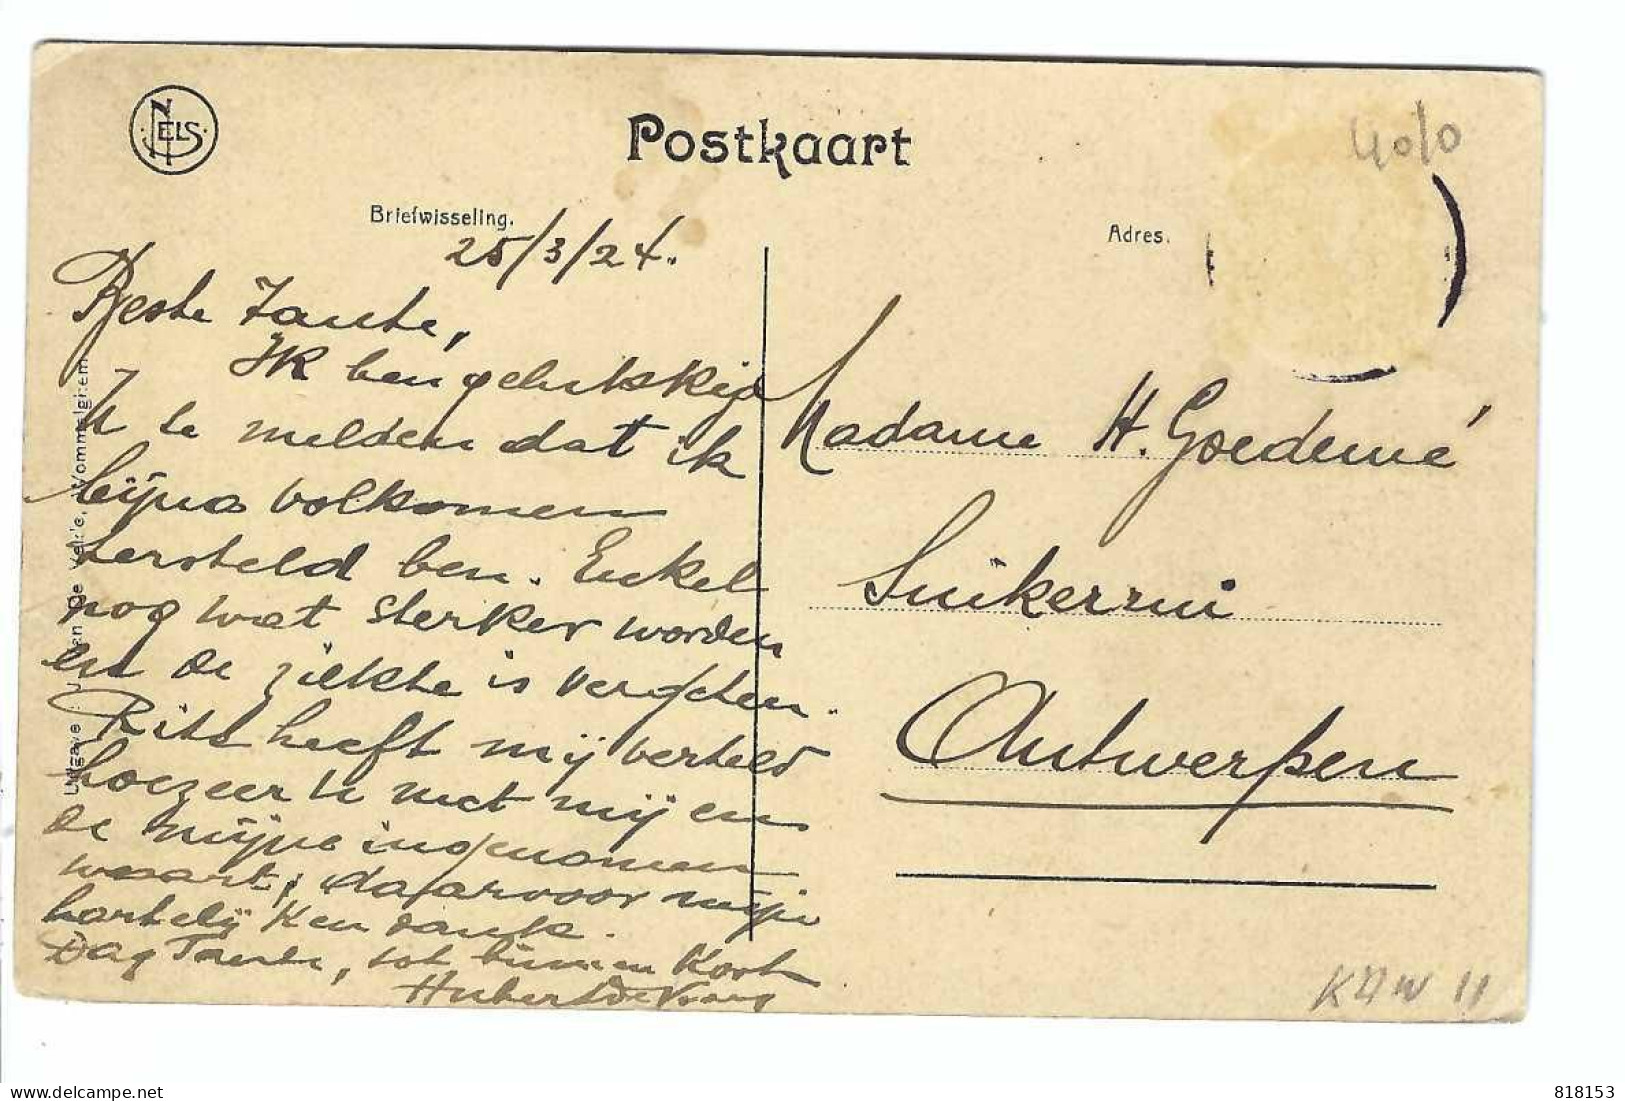 NELS
Postkaart
4010
Briefwisseling.
Adres.
25/3/24.
Beste Tante,
Ik ben gelukkig
U te melden dat ik
bijna volkomen
hersteld ben. Enkel
nog wat sterker worden
en de ziekte is vergeten.
heeft mij verteld
hoezeer U met mij en
de mijne ingenomen
waart, daarvoor mijn
hartelijken dank.
Dag Tante, tot binnen kort
Hubert
Madame H. Goedemé
Suikerrui
Antwerpen
Uitgave Wommelgem
818153